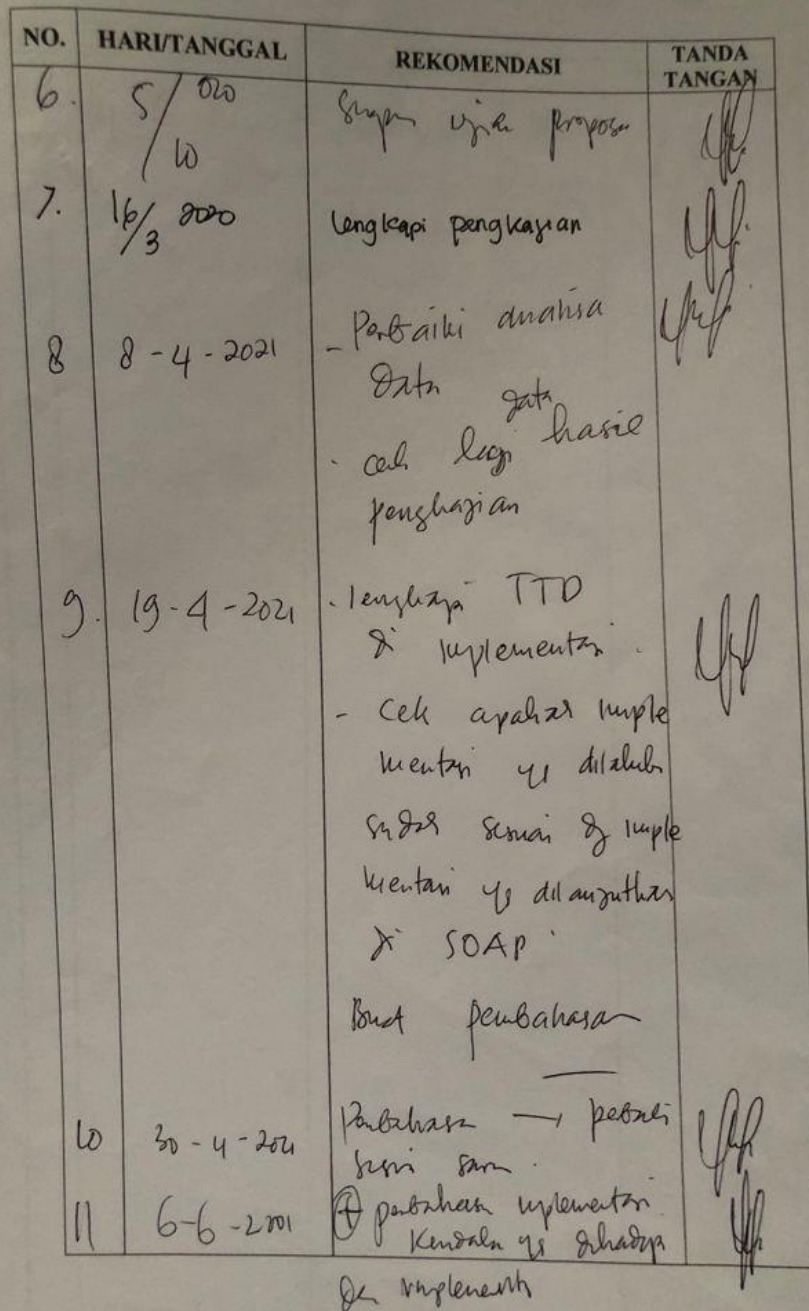 NO. HARI/TANGGAL REKOMENDASI TANDA TANGAN
6. 5/10 020 ujian proposal
7. 16/3 2020 lengkapi pengkajian
8 8-4-2021 - Perbaiki analisa
data
data
- cek lagi hasil
pengkajian
9. 19-4-2021 - lengkapi TTD
di implementasi.
- Cek apakah imple
mentasi yg dilakukan
sudah sesuai dg imple
mentasi yg dilanjutkan
di SOAP
Buat pembahasan
10 30-4-2021 Pembahasan → perbaiki
sesuai saran.
11 6-6-2001 + pembahasan implementasi
Kendala yg dihadapi
implementasi